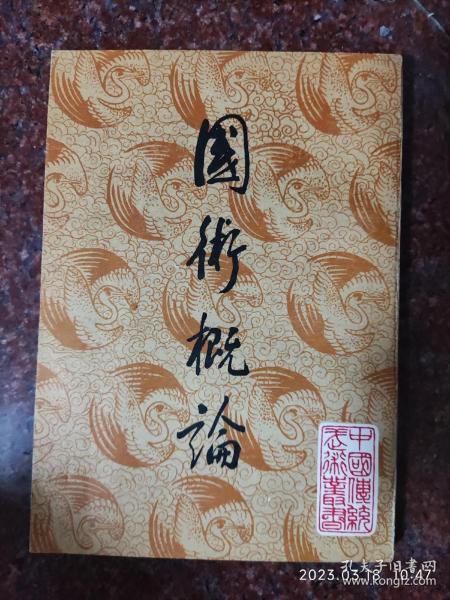 國術概論
中國傳統
武術叢書
2023.03.18 10:47
孔夫子旧书网